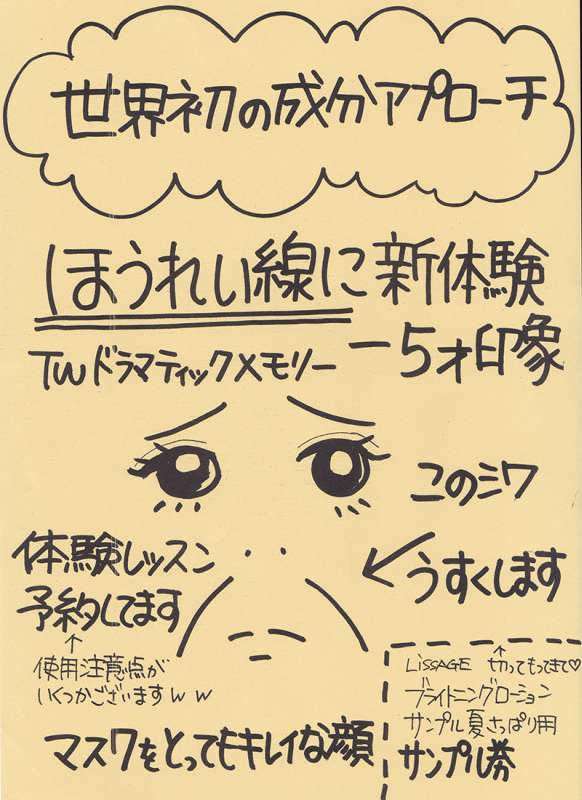 世界初の成分アプローチ
ほうれい線に新体験
TWドラマティックメモリー
−5才印象
このシワ
うすくします
体験レッスン
予約してます
↑
使用注意点が
いくつかございますｗｗ
↑
LiSSAGE 切ってもってきて♡
ブライトニングローション
サンプル夏さっぱり用
サンプル券
マスクをとってもキレイな顔